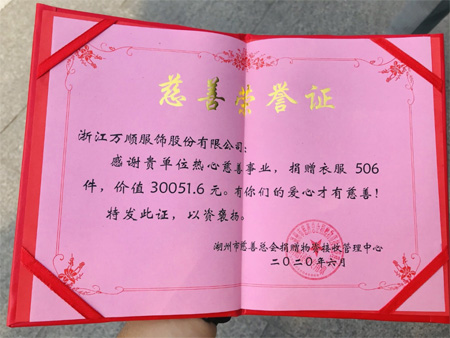 慈善荣誉证
浙江万顺服饰股份有限公司:
感谢贵单位热心慈善事业,捐赠衣服 506
件,价值 30051.6 元。有你们的爱心才有慈善!
特发此证,以资褒扬。
湖州市慈善总会捐赠物资接收管理中心
二〇二〇年六月